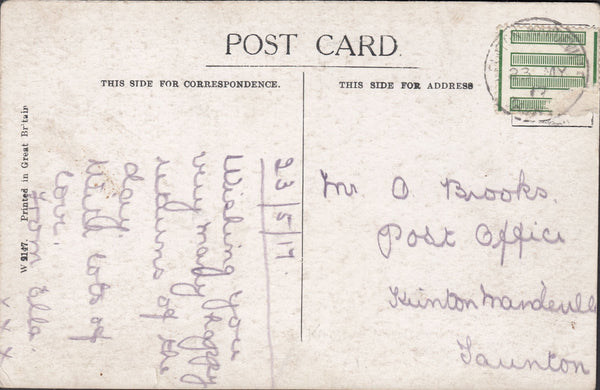 POST CARD.
THIS SIDE FOR CORRESPONDENCE.
THIS SIDE FOR ADDRESS
W 9147. Printed in Great Britain
23/5/17.
Wishing you
very many happy
returns of the
day.
With lots of
love.
from Ella.
x x x
Mr. O. Brooks.
Post Office
Kinton Mandeville
Taunton
23 MY
17